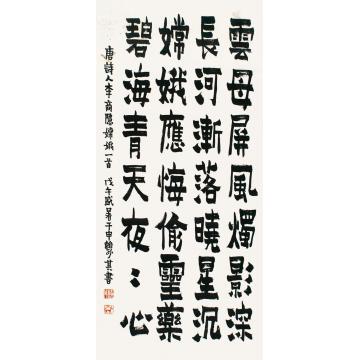 雲母屏風燭影深
長河漸落曉星沉
嫦娥應悔偷靈藥
碧海青天夜〻心
唐詩人李商隱嫦娥一首 戊午歲暑于申江 其書